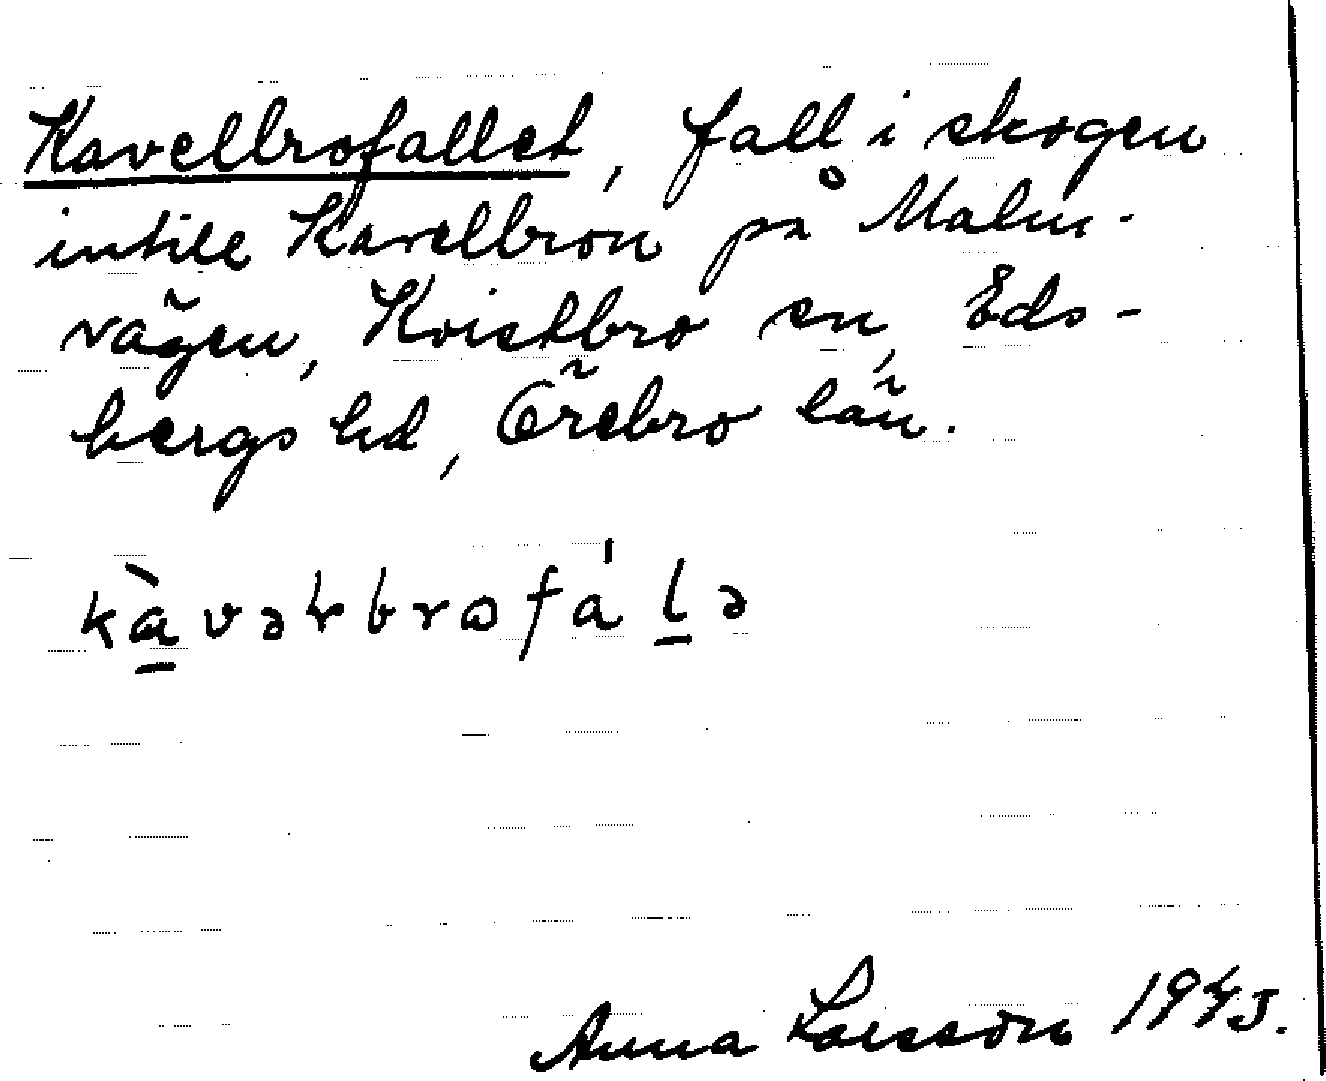 Kavelbrofallet, fall i skogen
intill Kavelbron på Malm-
vägen, Kvistbro sn, Eds-
bergs hd, Örebro län.
kàvəɽbrofálə
Anna Larsson 1945.